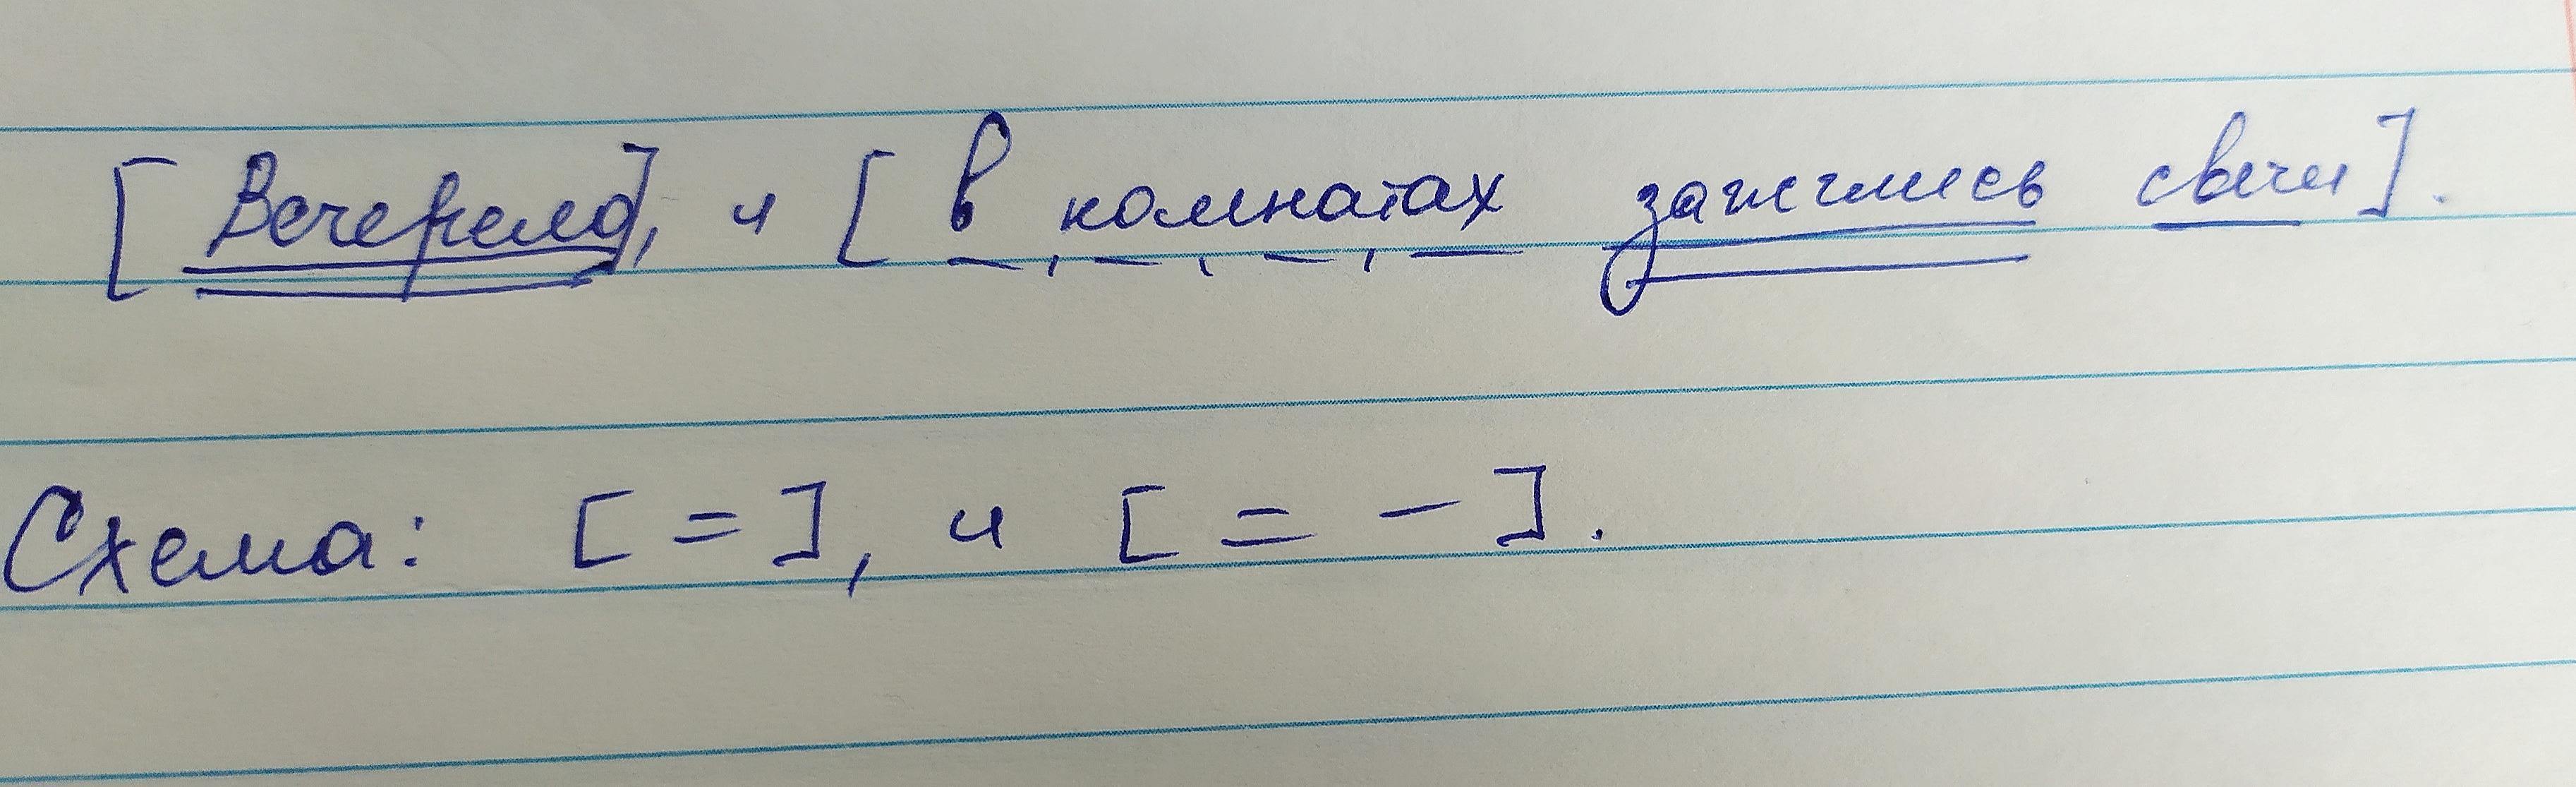 [Вечерело], и [в комнатах зажглись свечи].
Схема: [=], и [= –].